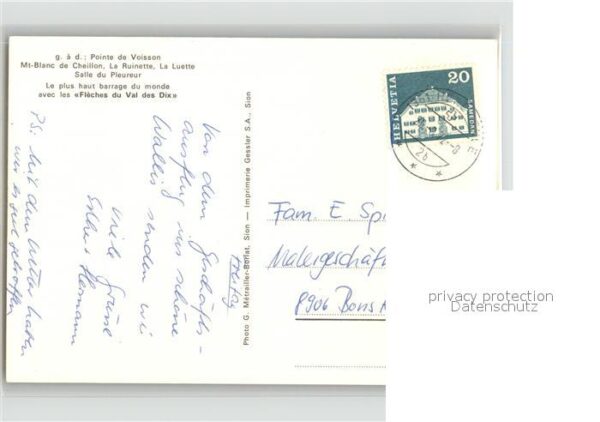 g. à d.: Pointe de Voisson
Mt-Blanc de Cheillon, La Ruinette, La Luette
Salle du Pleureur
Le plus haut barrage du monde
avec les «Flèches du Val des Dix»
Freitag
Von dem Geschäfts-
ausflug ins schöne
Wallis senden wir
viele Grüsse
Esther Hermann
PS. Mit dem Wetter haben
wir es gut getroffen
Photo G. Métrailler-Borlat, Sion — Imprimerie Gessler S.A., Sion
HELVETIA
20
SAMEDAN
Fam. E Spi
Malergeschäft
8906 Bons
privacy protection
Datenschutz